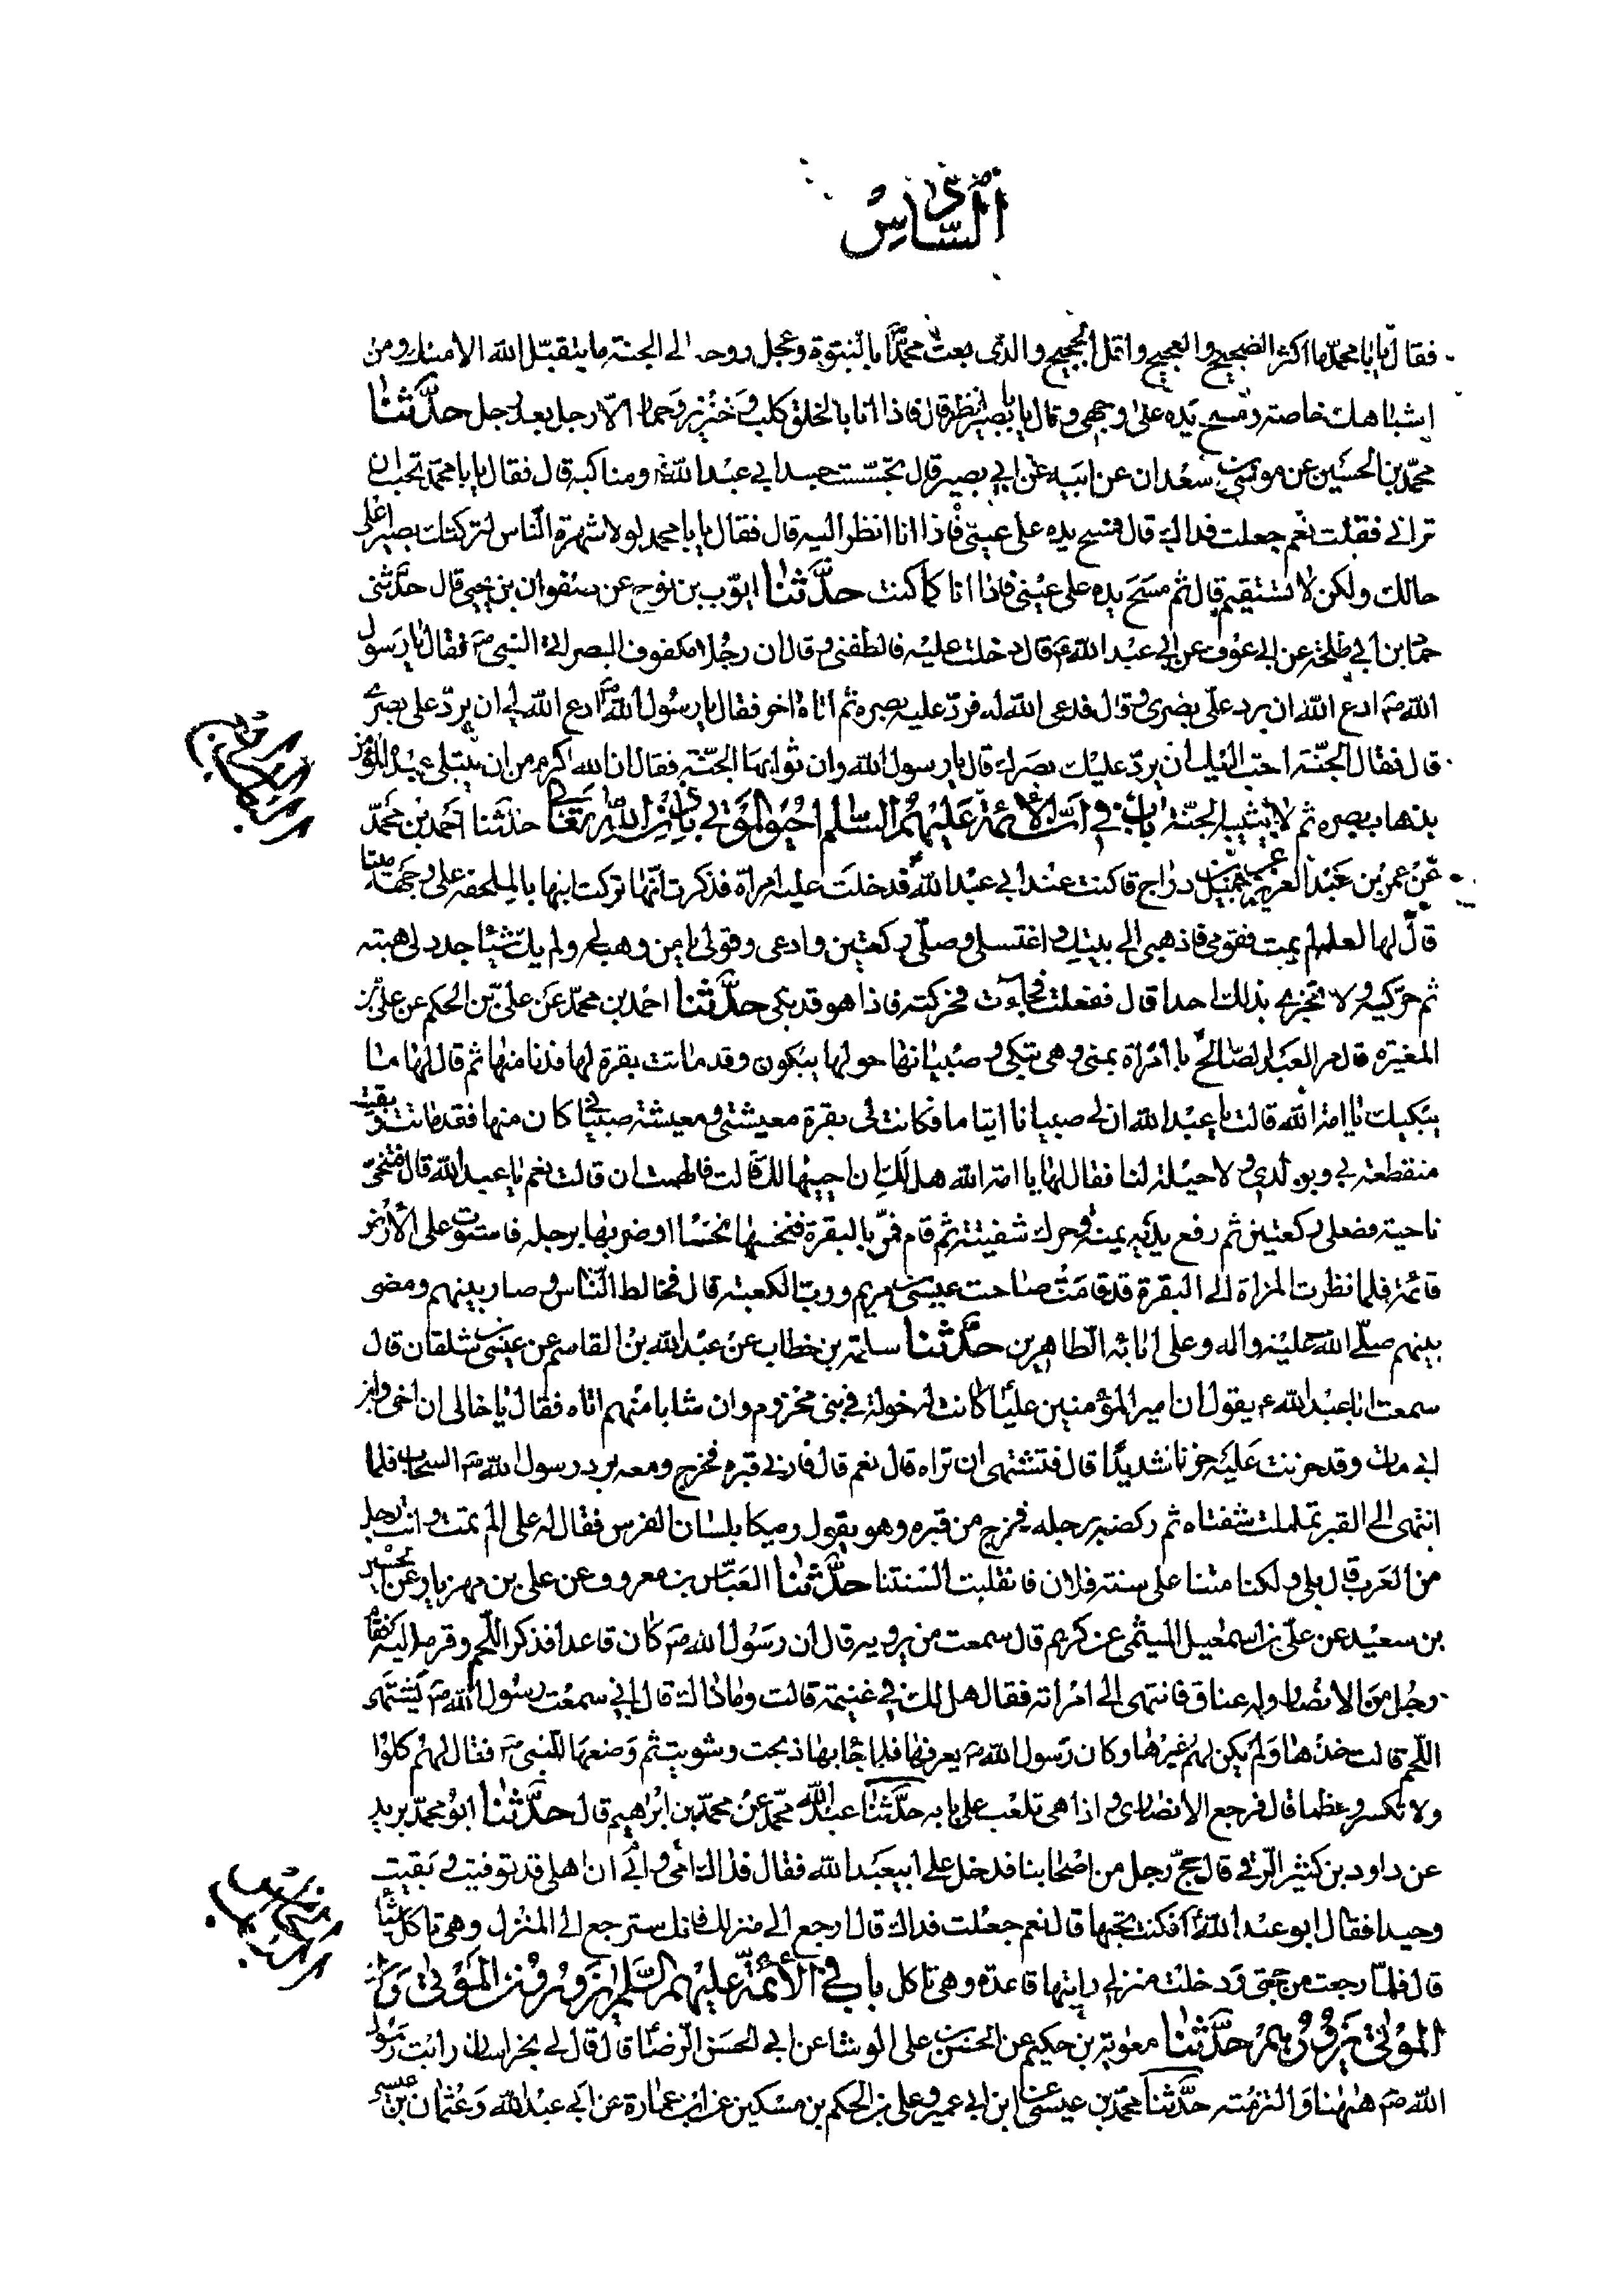 السادس
فقال يا با محمد ما اكثر الضجيج والعجيج واقل الحجيج والذى بعث محمدا بالنبوة وعجل روحه الى الجنة ما يتقبل الله الا منك ومن
اشباهك خاصة ومسح يده على وجهى وقال يا با بصير انظر قال فاذا انا بالخلق كلب وخنزير وحمار الا رجل بعد رجل حدثنا
محمد بن الحسين عن موسى بن سعدان عن ابيه عن ابي بصير قال تجسست جسد ابي عبد الله ومناكبه قال فقال يا با محمد تحب ان
تراني فقلت نعم جعلت فداك قال فمسح يده على عينى فاذا انا انظر اليه قال فقال يا با محمد لولا شهرة الناس لتركتك بصيرا على
حالك ولكن لا تستقيم قال ثم مسح يده على عينى فاذا انا كما كنت حدثنا ايوب بن نوح عن صفوان بن يحيى قال حدثنى
حماد بن ابي طلحة عن ابي عوف عن ابي عبد الله ع قال دخلت عليه فالطفنى وقال ان رجلا مكفوف البصر اتى النبى ص فقال يا رسول
الله ص ادع الله ان يرد على بصرى قال فدعى الله له فرد عليه بصره ثم اتاه اخر فقال يا رسول الله ص ادع الله لي ان يرد على بصرى
قال فقال الجنة احب اليك ان يرد عليك بصرك قال يا رسول الله وان ثوابها الجنة فقال ان الله اكرم من ان يبتلى عبده المؤمن
بذهاب بصره ثم لا يثيبه الجنة باب في ان الائمة عليهم السلام احيوا الموتى باذن الله تعالى حدثنا احمد بن محمد
عن عمر بن عبد العزيز عن جميل بن دراج قال كنت عند ابي عبد الله فدخلت عليه امراة فذكرت انها تركت ابنها بالملحفة على وجهه ميتا
قال لها لعله لم يمت فقومى فاذهبى الى بيتك واغتسلى وصلى ركعتين وادعى وقولى يا من وهبه لى ولم يك شيئا جدد لى هبته
ثم حركيه ولا تخبرى بذلك احدا قال ففعلت فجاءت فحركته فاذا هو قد بكى حدثنا احمد بن محمد عن على بن الحكم عن على بن
المغيرة قال مر العبد الصالح با امراة بمنى وهى تبكى وصبيانها حولها يبكون وقد ماتت بقرة لها فدنا منها ثم قال لها ما
يبكيك يا امة الله قالت يا عبد الله ان لى صبيانا ايتاما فكانت لى بقرة معيشتى ومعيشة صبياني كان منها فقد ماتت وبقيت
منقطعة بي وبولدى ولا حيلة لنا فقال لها يا امة الله هل لك ان احييها لك قالت فالهمت ان قالت نعم يا عبد الله قال فتنحى
ناحية فصلى ركعتين ثم رفع يديه يمنة وحرك شفيته ثم قام فمر بالبقرة فنخسها نخسا او ضربها برجله فاستوت على الارض
قائمة فلما نظرت المراة الى البقرة قد قامت صاحت عيسى بن مريم ورب الكعبة قال فخالط الناس وصار بينهم ومضى
بينهم صلى الله عليه واله وعلى ابائه الطاهرين حدثنا سلمة بن خطاب عن عبد الله بن القاسم عن عيسى بن شلقان قال
سمعت ابا عبد الله ع يقول ان امير المؤمنين عليا كانت له خولة في بنى مخزوم وان شابا منهم اتاه فقال يا خالى ان اخى وابن
ابى مات وقد حزنت عليه حزنا شديدا قال فتشتهى ان تراه قال نعم قال فارنى قبره فخرج ومعه برد رسول الله ص السحاب فلما
انتهى الى القبر تململت شفتاه ثم ركضه برجله فخرج من قبره وهو يقول رميكا بلسان الفرس فقال له على الم تمت وانت رجل
من العرب قال بلى ولكنا متنا على سنة فلان فانقلبت السنتنا حدثنا العباس بن معروف عن على بن مهزيار عن الحسين
بن سعيد عن على بن اسمعيل الميثمى عن كريم قال سمعت من يرويه قال ان رسول الله ص كان قاعدا فذكر اللحم وقرمه اليه فقام
رجل من الانصار وله عناق فانتهى الى امراته فقال هل لك في غنيمة قالت وما ذاك قال انى سمعت رسول الله ص يشتهى
اللحم قالت خذها ولم يكن لهم غيرها وكان رسول الله ص يعرفها فلما جا بها ذبحت وشويت ثم وضعها للنبى ص فقال لهم كلوا
ولا تكسروا عظما قال فرجع الانصارى واذا هى تلعب على بابه حدثنا عبد الله بن محمد عن محمد بن ابراهيم قال حدثنا ابو محمد بريد
عن داود بن كثير الرقى قال حج رجل من اصحابنا فدخل على ابيعبد الله فقال فداك امى وابى ان اهلى قد توفيت وبقيت
وحيدا فقال ابو عبد الله افكنت تحبها قال نعم جعلت فداك قال ارجع الى منزلك فانك سترجع الى المنزل وهى تاكل شيئا
قال فلما رجعت من حجتى ودخلت منزلى رايتها قاعدة وهى تاكل باب في الأئمة عليهم السلام انهم يزورون الموتى وان
الموتى يزورونهم حدثنا معوية بن حكيم عن الحسن بن على الوشا عن ابي الحسن الرضا قال قال لى بخراسان رايت رسول
الله ص ههنا والتزمته حدثنا محمد بن عيسى عن ابن ابي عمير وعلى بن الحكم بن مسكين عن ابي عمارة عن ابي عبد الله وعثمان بن عيسى